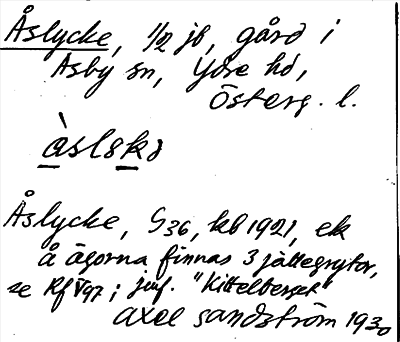 Åslycke, 1/2 jb, gård i
Asby sn, Ydre hd,
Österg. l.
àslskə
Åslycke, S36, kb 1921, ek
å ägorna finnas 3 jättegrytor,
se Rf V97; jmf. "Kittelberget"
Axel Sandström 1930